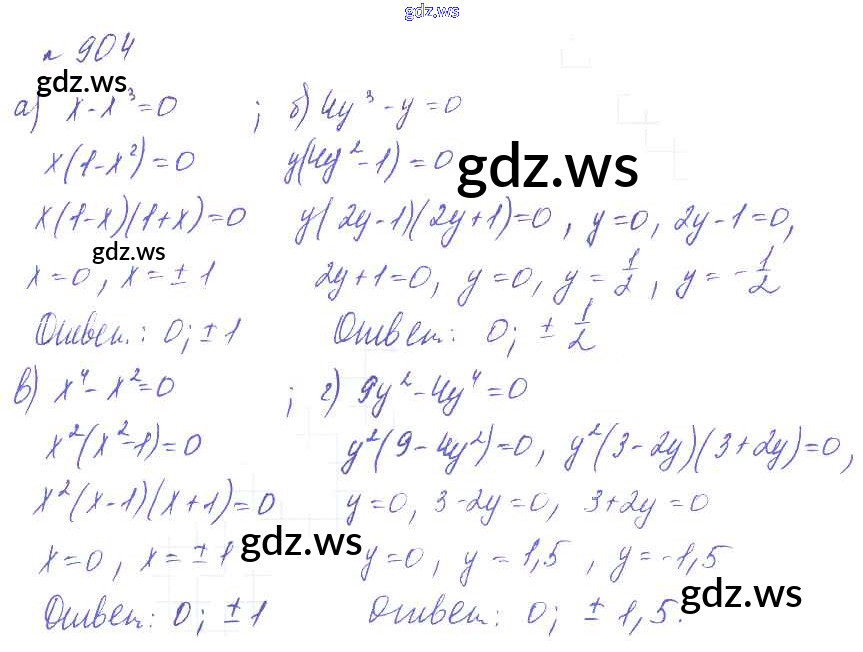 gdz.ws
№ 904
gdz.ws
а) x - x³ = 0 ; б) 4y³ - y = 0
x(1-x²) = 0 y(4y² - 1) = 0
gdz.ws
x(1-x)(1+x) = 0 y(2y-1)(2y+1)=0, y=0, 2y-1=0,
gdz.ws
x=0, x=±1 2y+1=0, y=0, y=1/2, y=-1/2
Ответ: 0; ±1 Ответ: 0; ±1/2
в) x⁴ - x² = 0 ; г) 9y² - 4y⁴ = 0
x²(x²-1)=0 y²(9-4y²)=0, y²(3-2y)(3+2y)=0,
x²(x-1)(x+1)=0 y=0, 3-2y=0, 3+2y=0
x=0, x=±1 y=0, y=1,5, y=-1,5
gdz.ws
gdz.ws
Ответ: 0; ±1 Ответ: 0; ±1,5.